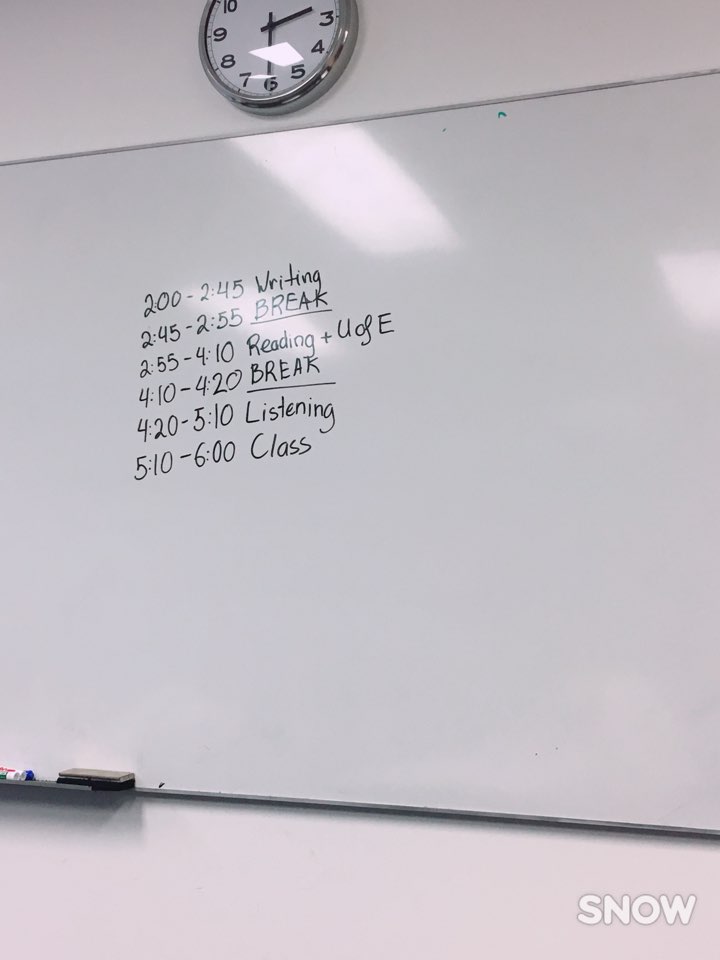 10
9
8
7
6
5
4
3
2:00 - 2:45 Writing
2:45 - 2:55 BREAK
2:55 - 4:10 Reading + U of E
4:10 - 4:20 BREAK
4:20 - 5:10 Listening
5:10 - 6:00 Class
SNOW